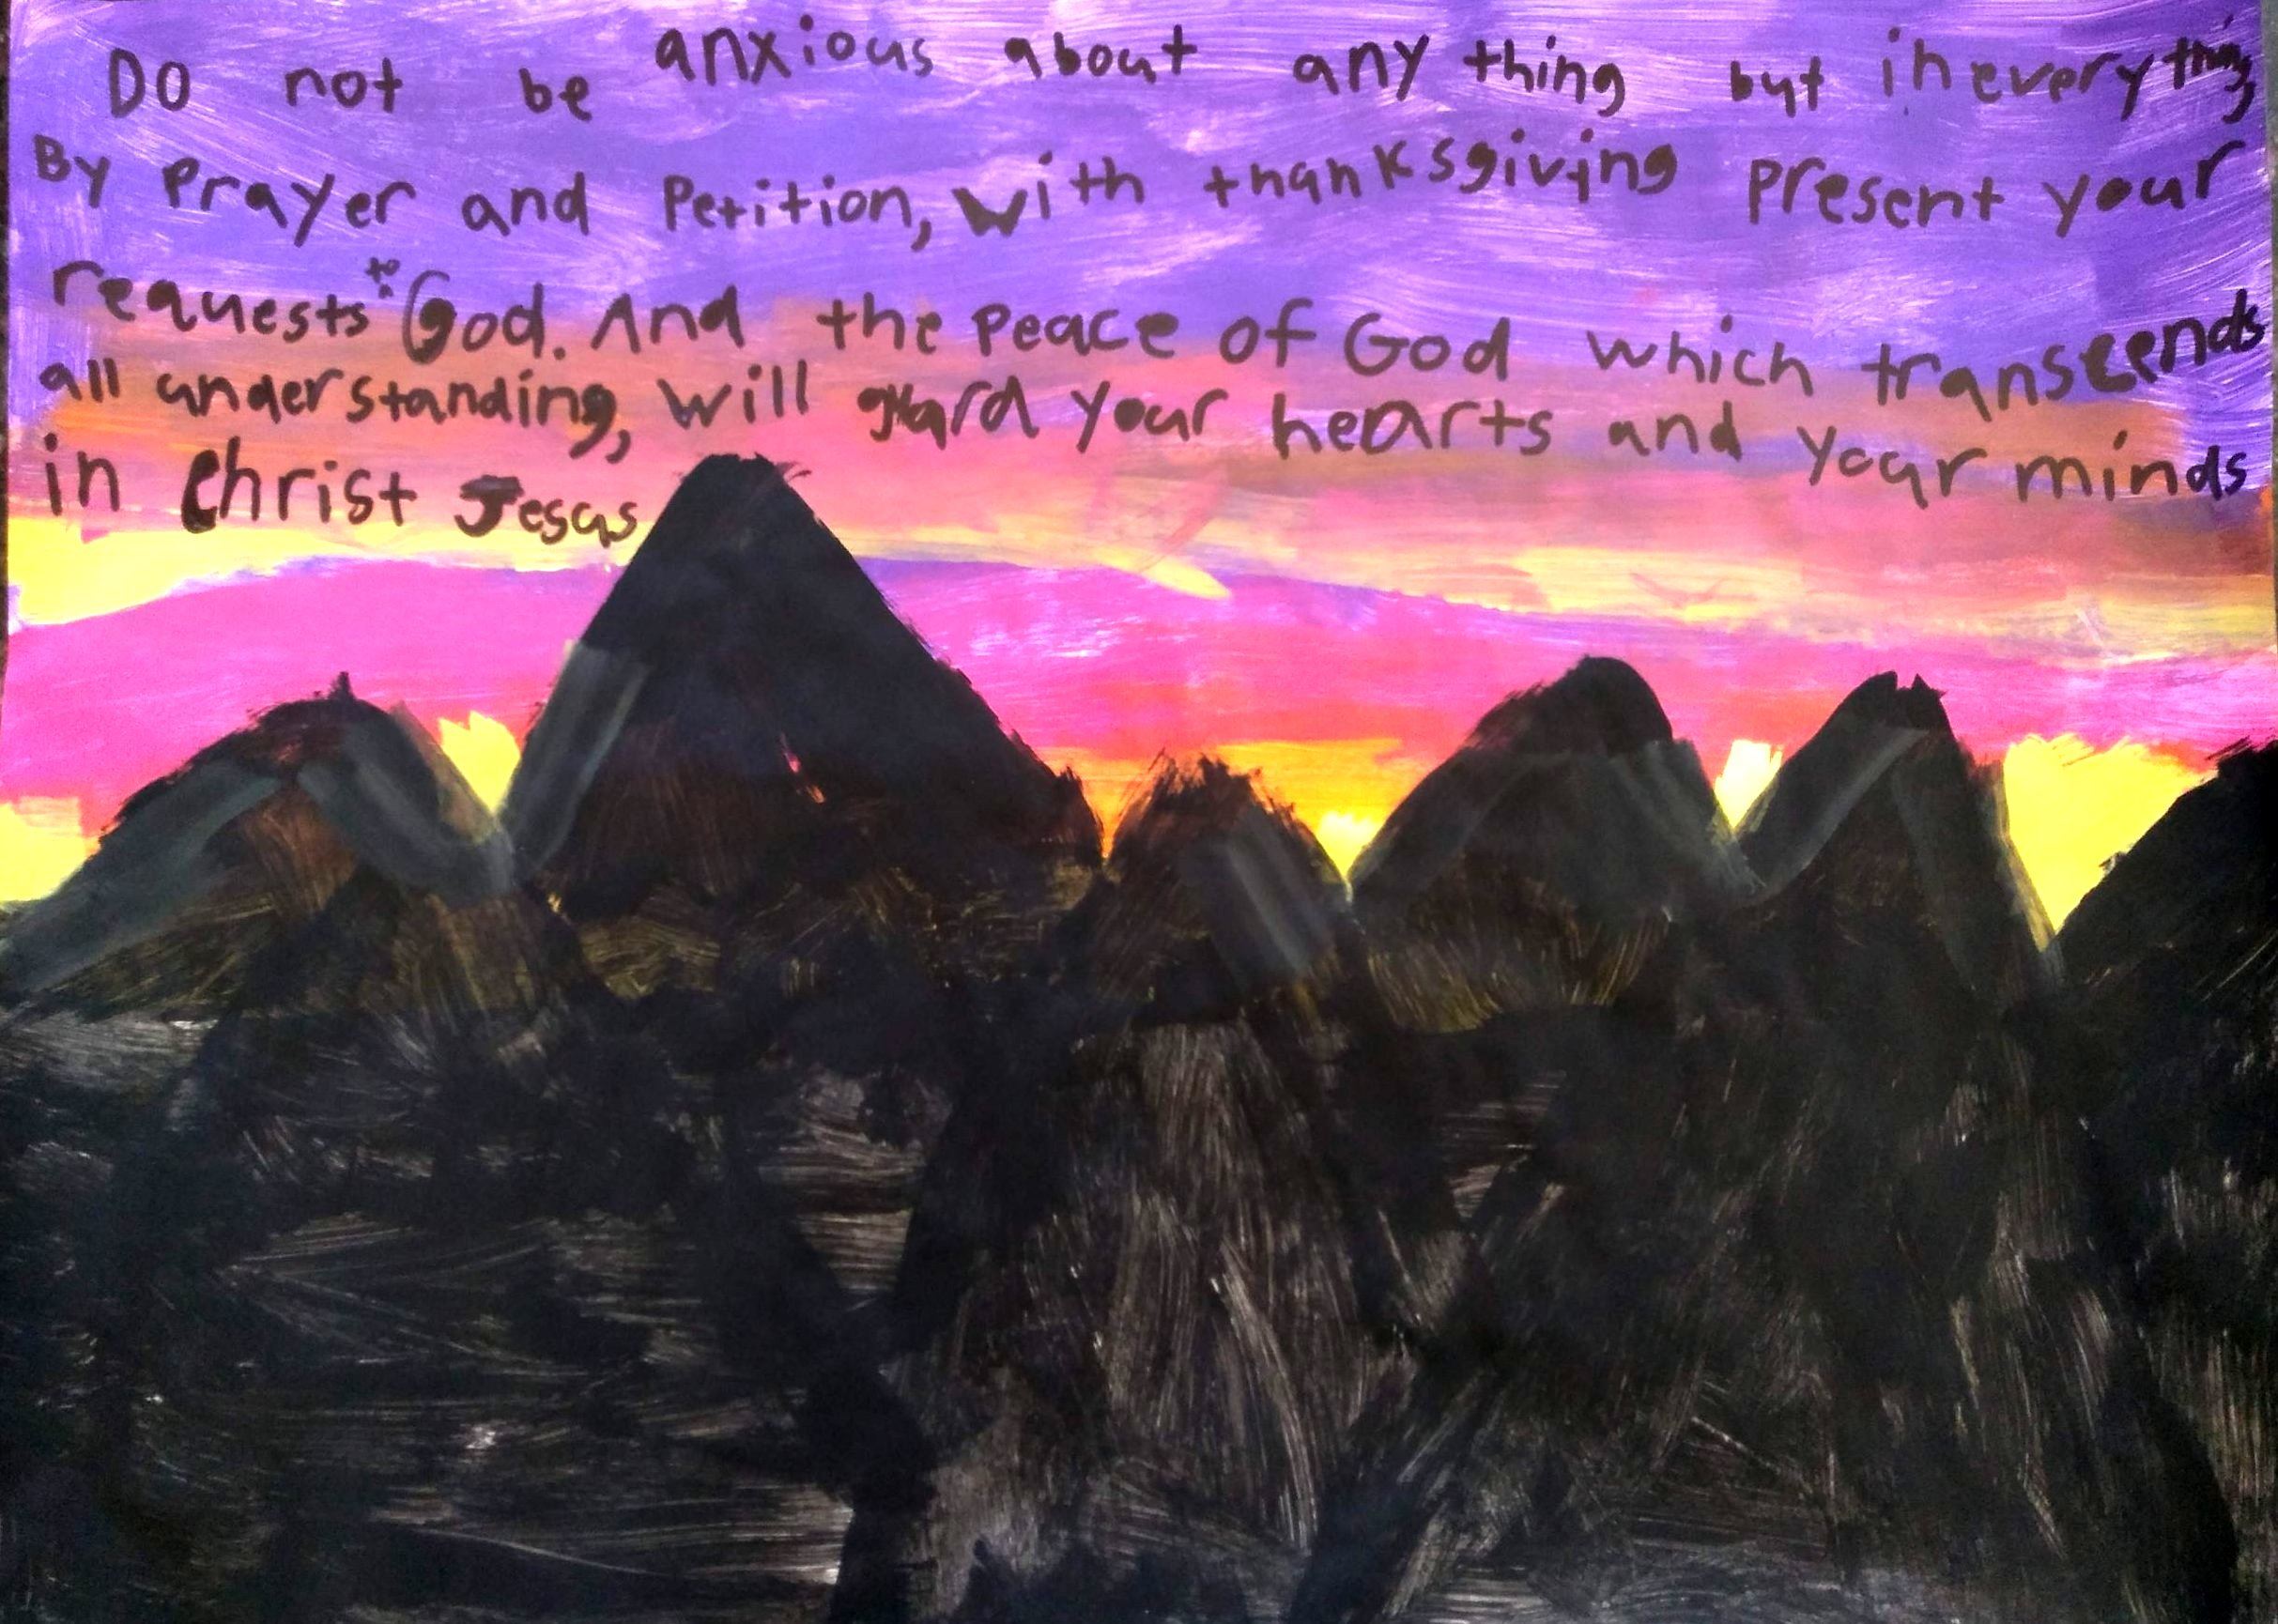 Do not be anxious about any thing but in everything
By Prayer and Petition, with thanksgiving present your
requests to God. And the peace of God which transcends
all understanding, will guard your hearts and your minds
in Christ Jesus